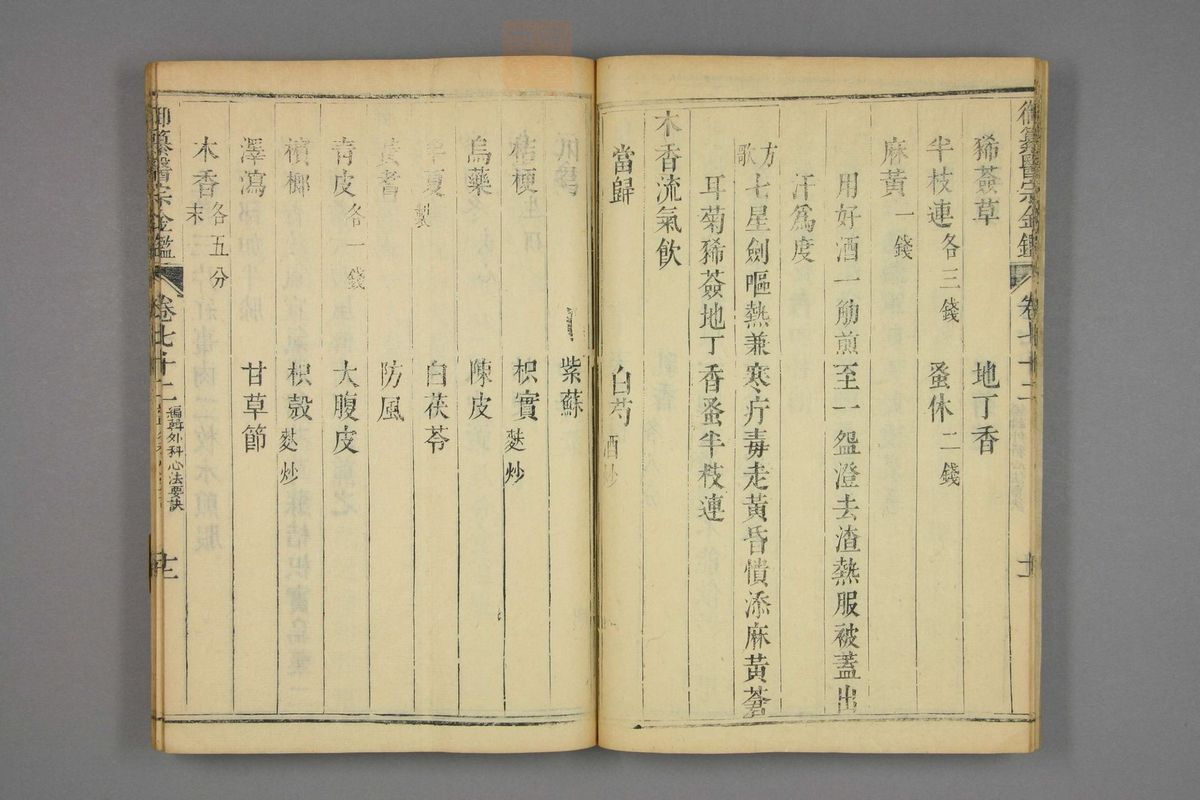 御纂醫宗金鑑 卷七十二 十二
豨薟草 地丁香
半枝連各三錢 蚤休二錢
麻黃一錢
用好酒一觔煎至一盌澄去渣熱服被蓋出
汗爲度
方歌 七星劍嘔熱兼寒疔毒走黃昏憒添麻黃蒼
耳菊豨薟地丁香蚤半枝連
木香流氣飲
當歸 白芍酒炒
川芎 紫蘇
桔梗 枳實麩炒
烏藥 陳皮
半夏製 白茯苓
黃耆 防風
青皮各一錢 大腹皮
檳榔 枳殼麩炒
澤瀉 甘草節
木香末各五分
御纂醫宗金鑑 卷七十二 編輯外科心法要訣 十三